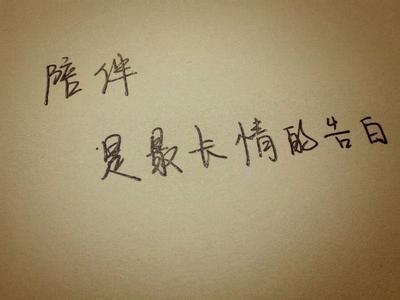 陪伴
是最长情的告白